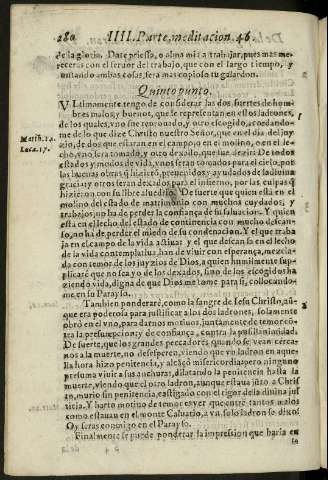 280 IIII. Parte, meditacion. 46.
de la gloria. Date priessa, o alma mia a trabajar, pues mas me-
receras con el feruor del trabajo, que con el largo tiempo, y
juntando ambas cosas, sera mas copioso tu galardon.
Quinto punto.
VLtimamente tengo de considerar las dos suertes de hom-
bres malos, y buenos, que se representan en estos ladrones,
de los quales, vno fue tomado, y otro escogido, acordando-
Matth.24. me de lo que dize Christo nuestro Señor, que en el dia del juy-
Luca.17. zio, de dos que estaran en el campo, o en el molino, o en el le-
cho, vno sera tomado, y otro dexado, que fue dezir: De todos
estados, y modos de vida, vnos seran tomados para el cielo, por
las buenas obras q̃ hizierō, preuenidos y ayudados de la diuina
gracia: y otros seran dexados para el infierno, por las culpas q̃
hizierō con su libre aluedrio. De suerte que quien està en el
molino del estado de matrimonio con muchos cuydados, y
trabajos, no ha de perder la confiança de su saluacion. Y quien
està en el lecho, del estado de continencia con mucho descan-
so, no ha de perder el miedo de su condenacion. Y el que traba
ja en el campo de la vida actiua: y el que descansa en el lecho
de la vida contemplatiua, han de viuir con esperança, mezcla-
da con temor de los juyzios de Dios, a quien humilmente su-
plicarè que no sea yo de los dexados, sino de los escogidos ha
ziendo vida, digna de que Dios me tome para si, collocando-
me en su Parayso.
Tambien ponderarè, como la sangre de Iesu Christo, aũ-
que era poderosa para justificar a los dos ladrones, solamente
obrò en el vno, para darnos motiuos, juntamente de temor cō-
tra la presumpcion; y de confiança, contra la pusilanimidad.
De suerte, que los grandes peccadores quando se vean cerca-
nos a la muerte, no desesperen, viendo que vn ladron en aque-
lla hora hizo penitencia, y alcāçò misericordia: pero ninguno
presuma viuir a sus anchuras, dilatando la penitencia hasta la
muerte, viendo que el otro ladron, aunque estaua jūto a Chris
to, murio sin penitencia, castigado con el rigor de la diuina jus
ticia. Y harto motiuo de temor es ver que entre tantos malos
como estauan en el monte Caluario, a vn solo ladron se dixo:
Oy seras conmigo en el Parayso.
Finalmente se puede ponderar la impression que haria en
la